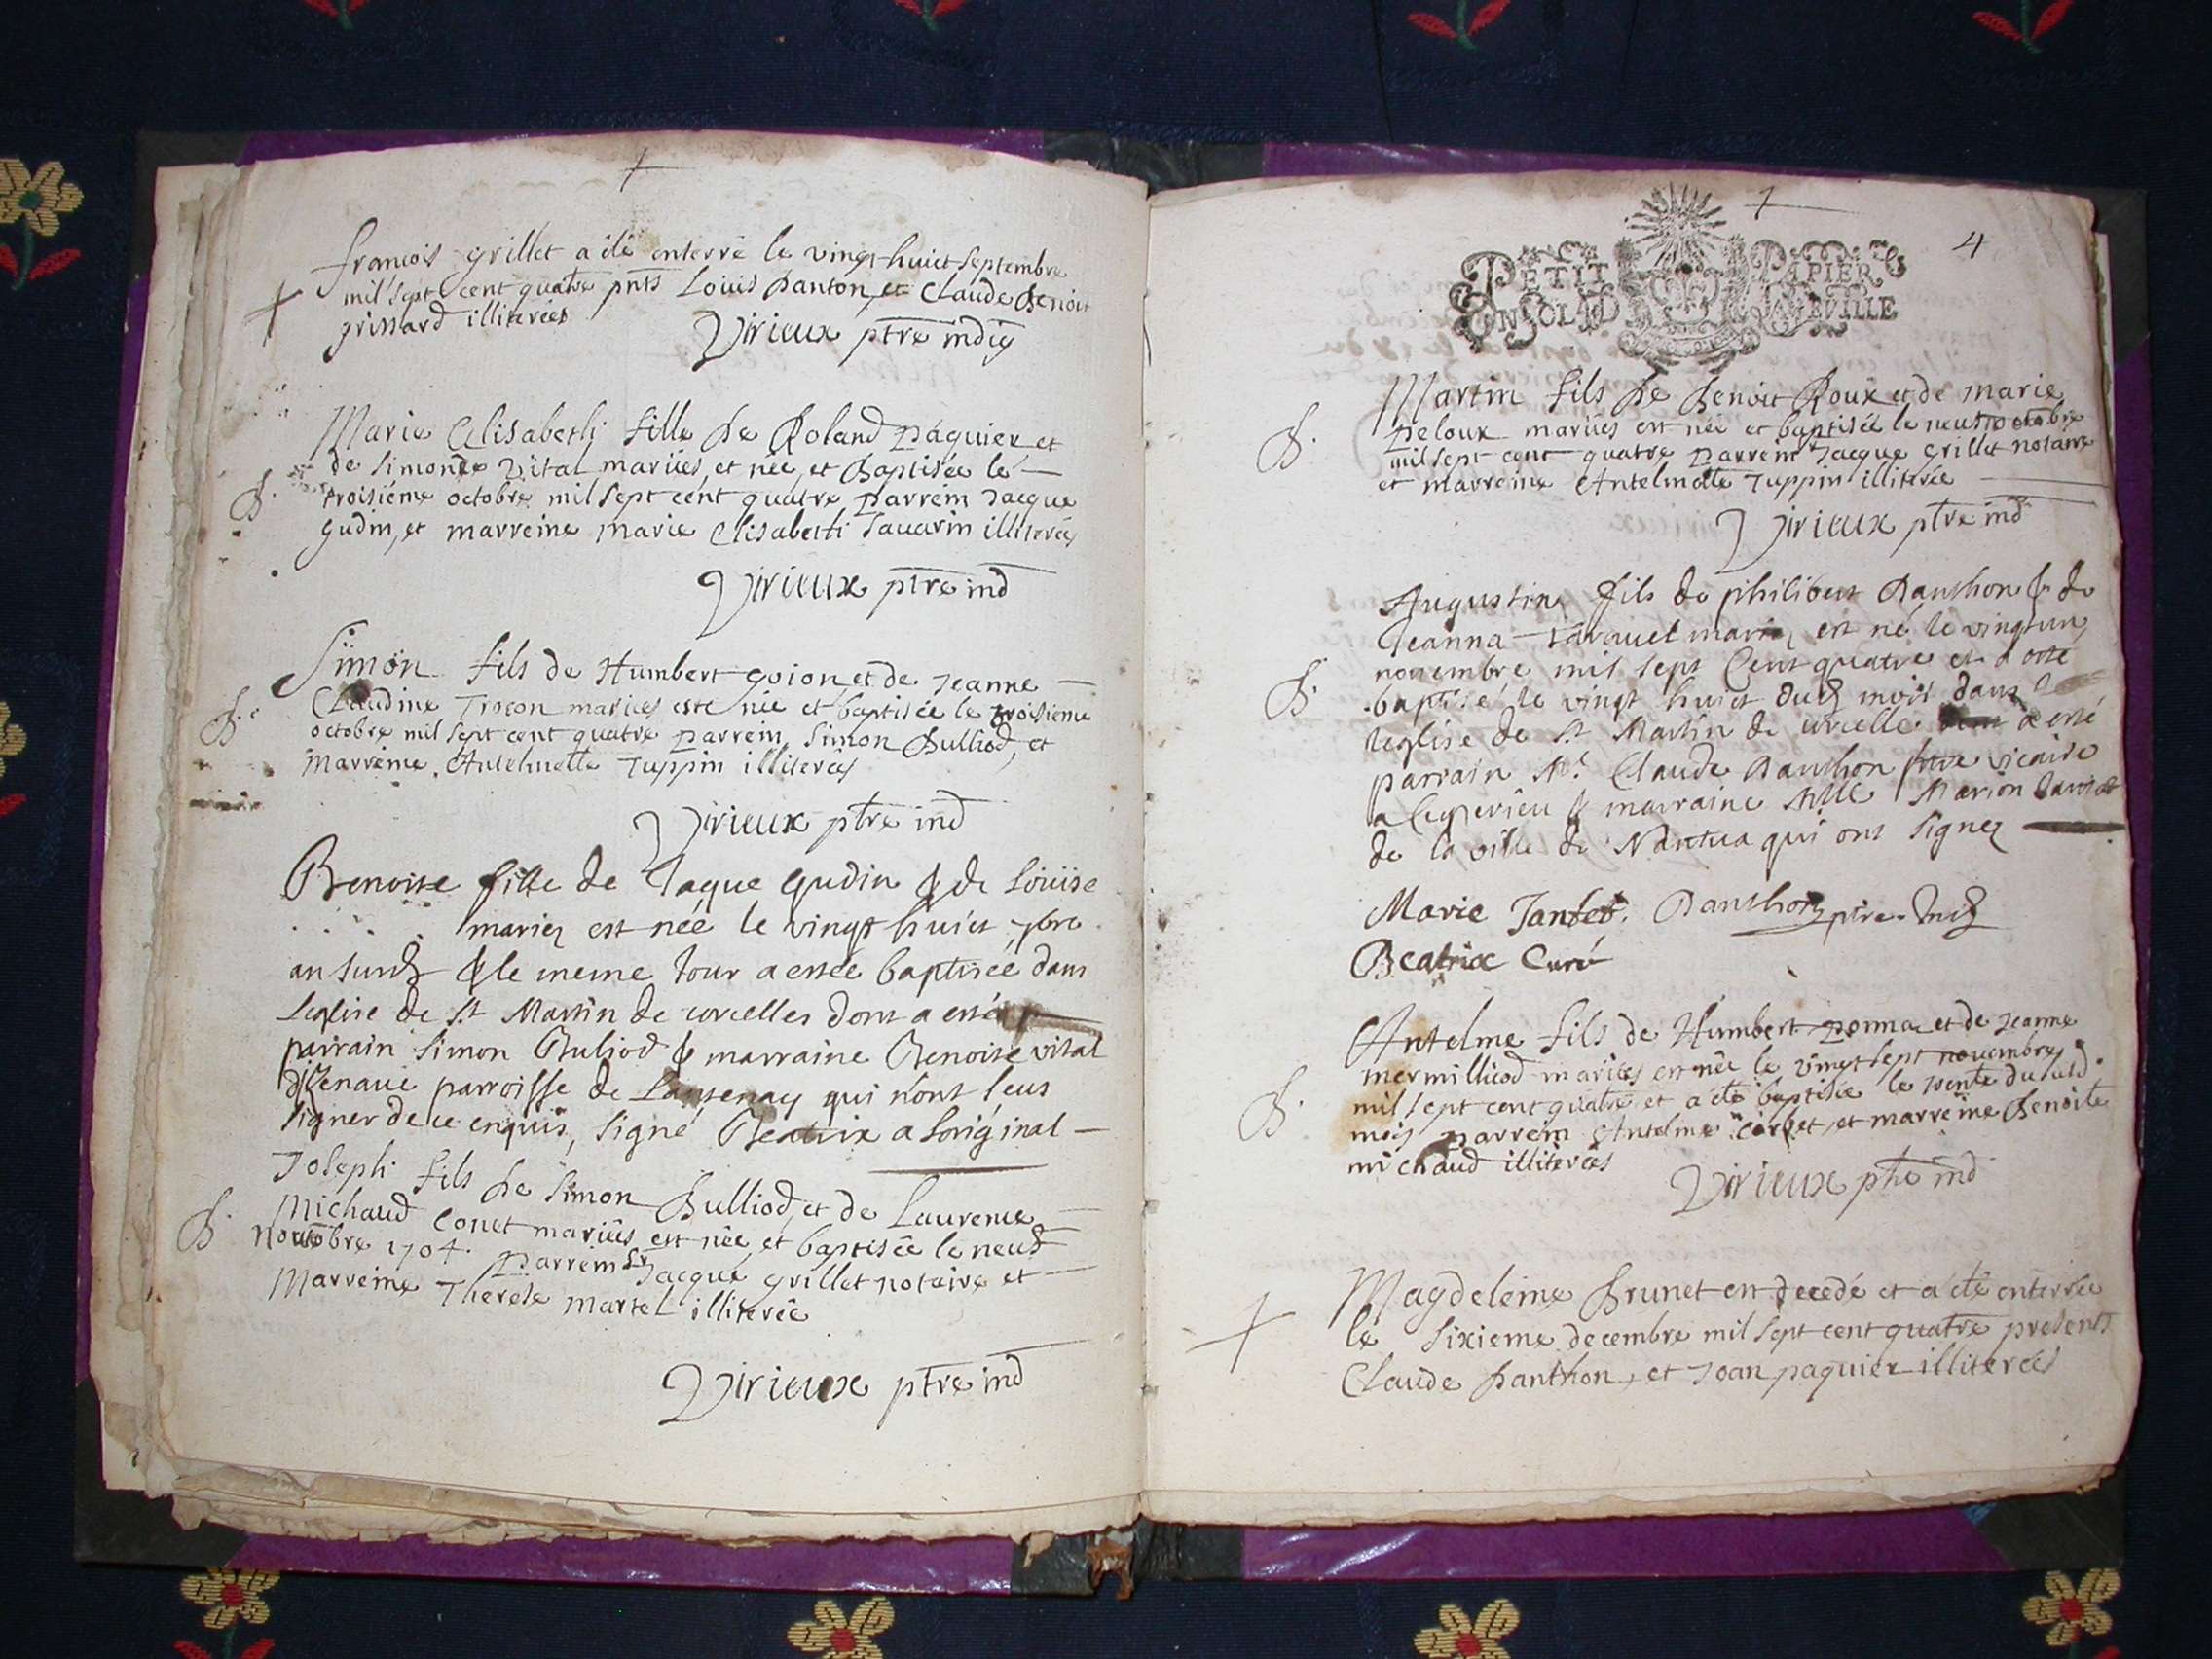 francois grillet a ête enterré le vingt huict septembre
mil sept cent quatre pnts Louis Danton, et Claude Benoit
grissard illiterées
Virieux ptre indig
Marie Elisabeth fille de Roland páquier et
de Simonde Vital mariées, et née, et Baptisée le
B. troisiéme octobre mil sept cent quatre parrein Jacque
gudin, et marreine marie Elisabeth Sauarin illiterées
Virieux ptre ind
Simon fils de Humbert goion et de jeanne
Claudine Trocon mariées este née et baptisée le troisieme
B. octobre mil sept cent quatre parrein Simon Bulliod, et
Marreine Antelmette Juppin illiterées
Virieux ptre ind
Benoite fille de Jaque Gudin & de Louise
. . . . mariez est née le vingt huict 7bre
an susd & le meme Jour a estée baptisée dans
Leglise de St Martin de corcelles dont a esté
parrain Simon Buliod & marraine Benoite vital
parroisse de qui n'ont sceus
signer de ce enquis, signé Beatrix a Loriginal
Joseph fils de Simon Bulliod, et de Laurence
B. Michaud Conet mariées est née et baptisée le neuf
Nouebre 1704. Parrein Sr Jacque grillet notaire et
Marreine Therese Martel illiterée
Virieux ptre ind
4
PETIT PAPIER
UN SOL 4D LA FEVILLE
Martin fils de Benoit Roux et de marie
B. peloux mariées est née et baptisée le neuf octobre
mil sept cent quatre parrein Sr Jacque grillet notaire
et marreine Antelmette Juppin illiterée
Virieux ptre ind
Augustin fils de philibert Danthon & de
Jeanna mariez est né le vingt un
novembre mil sept Cent quatre et a esté
B. baptisé le vingt huict dud mois dans
leglise de St Martin de corcelle a esté
parrain Mr Claude Danthon ptre vicaire
a & marraine Mlle Marion
de la ville de Nantua qui ont signez
Marie Jantet. Danthon ptre. Ind
Beatrix Curé
Antelme fils de Humbert ponna et de jeanne
mermilliod mariées est née le vingt sept novembre
B. mil sept cent quatre et a été baptisée le trente du susd.
mois parrein Antelme carlet, et marreine Benoite
michaud illiterées
Virieux ptre ind
Magdeleine Brunet est decedé et a été enterrée
le sixieme decembre mil sept cent quatre presents
Claude Danthon, et Joan paquier illiterées